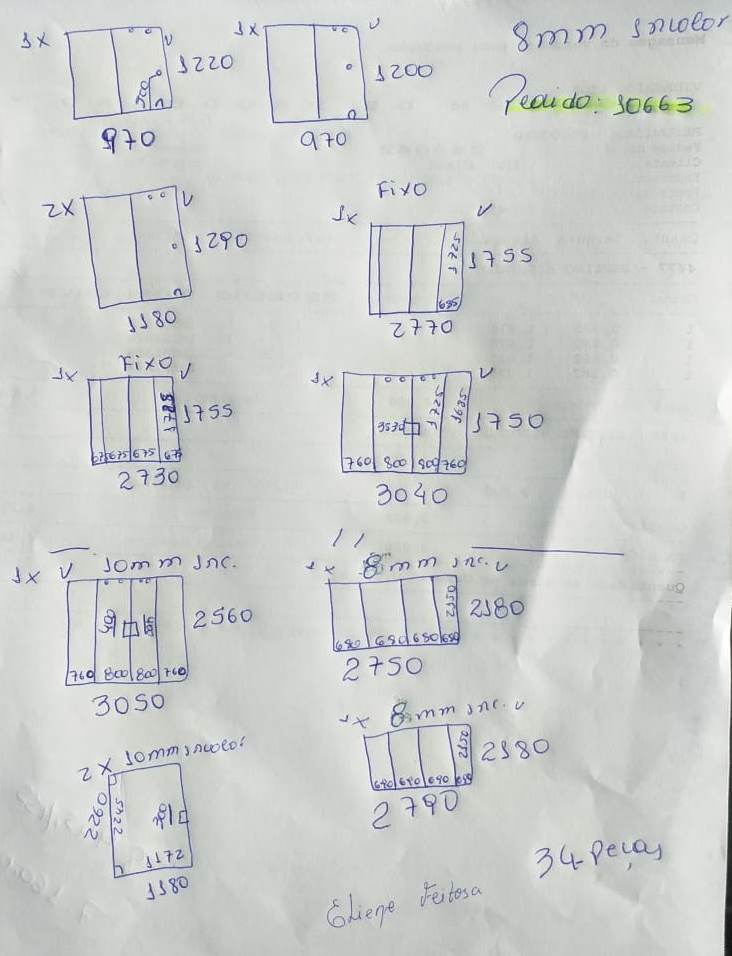 8mm Incolor
Pedido: 10663
1x V 1220
970
1x V 1200
970
2x V 1290
1180
Fixo
1x V 1755
685
2770
Fixo
1x V 1755
675 675 675 675
2730
1x V 1750
760 800 800 760
3040
1x V 10mm Inc.
2560
760 800 800 760
3050
1x 8mm Inc. V
2180
680 680 680 680
2750
1x 8mm Inc. V
2180
690 690 690 690
2790
2x 10mm Incolor
1172
1180
34 Peças
Eliene Feitosa